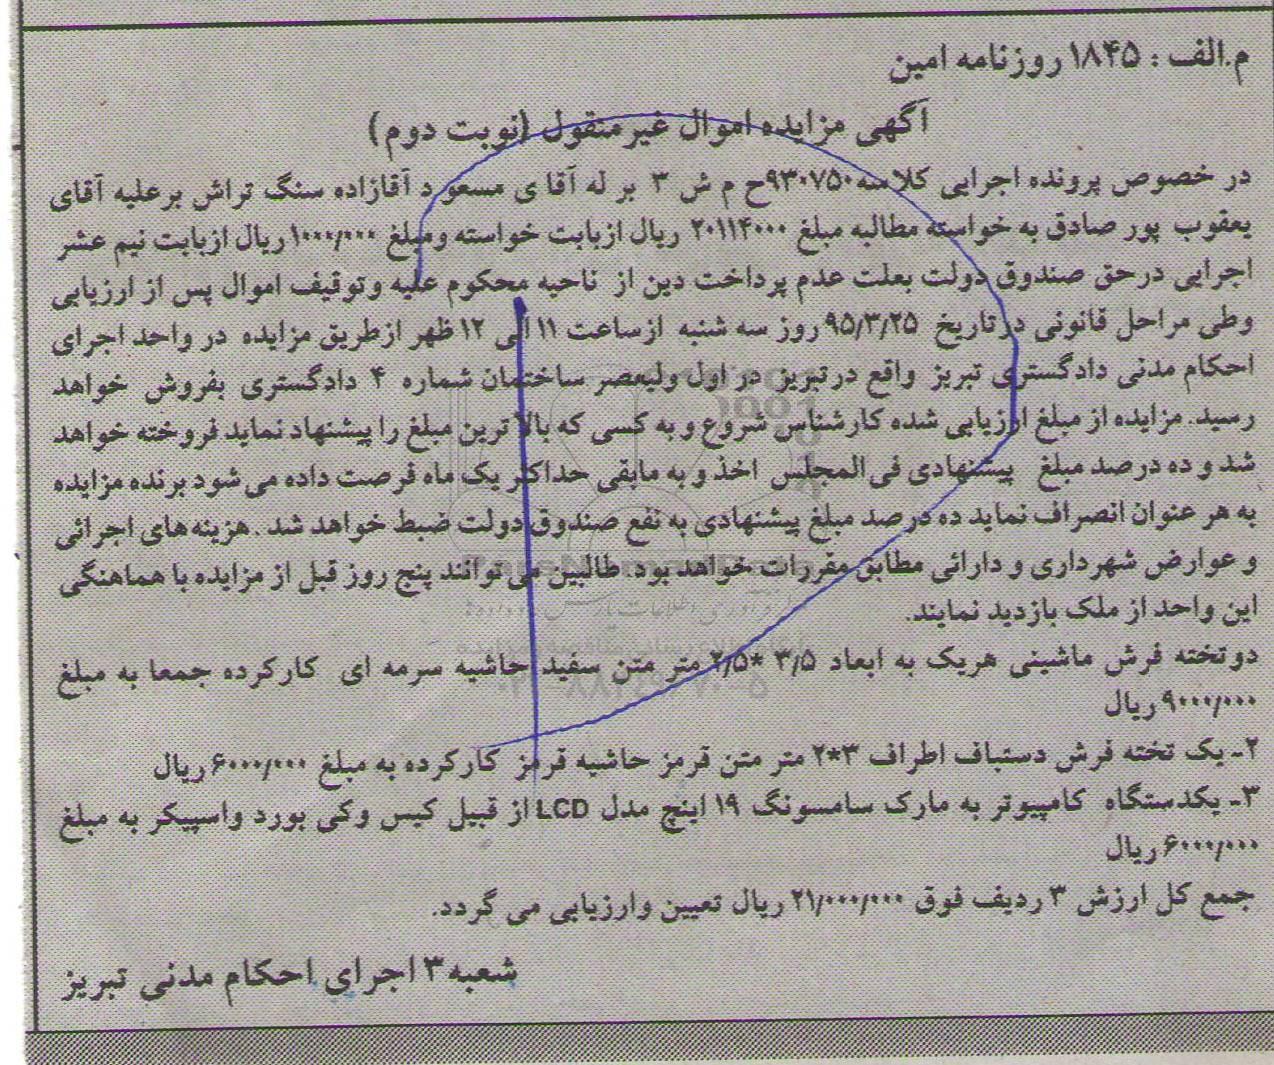 م.الف : ۱۸۴۵ روزنامه امین
آگهی مزایده اموال غیرمنقول (نوبت دوم)
در خصوص پرونده اجرایی کلاسه ۹۳۰۷۵۰ح م ش ۳ بر له آقا ی مسعو د آقازاده سنگ تراش برعلیه آقای
یعقوب پور صادق به خواسته مطالبه مبلغ ۲۰۱۱۴۰۰۰ ریال ازبابت خواسته ومبلغ ۱۰۰۰/۰۰۰ ریال ازبابت نیم عشر
اجرایی درحق صندوق دولت بعلت عدم پرداخت دین از ناحیه محکوم علیه وتوقیف اموال پس از ارزیابی
وطی مراحل قانونی درتاریخ ۹۵/۳/۲۵ روز سه شنبه ازساعت ۱۱ الی ۱۲ ظهر ازطریق مزایده در واحد اجرای
احکام مدنی دادگستری تبریز واقع درتبریز در اول ولیعصر ساختمان شماره ۴ دادگستری بفروش خواهد
رسید. مزایده از مبلغ ارزیابی شده کارشناس شروع و به کسی که بالا ترین مبلغ را پیشنهاد نماید فروخته خواهد
شد و ده درصد مبلغ پیشنهادی فی المجلس اخذ و به مابقی حداکثر یک ماه فرصت داده می شود برنده مزایده
به هر عنوان انصراف نماید ده درصد مبلغ پیشنهادی به نفع صندوق دولت ضبط خواهد شد . هزینه های اجرائی
و عوارض شهرداری و دارائی مطابق مقررات خواهد بود. طالبین می توانند پنج روز قبل از مزایده با هماهنگی
این واحد از ملک بازدید نمایند.
دوتخته فرش ماشینی هریک به ابعاد ۳/۵ *۲/۵ متر متن سفید حاشیه سرمه ای کارکرده جمعا به مبلغ
۹۰۰۰/۰۰۰ ریال
۲- یک تخته فرش دستباف اطراف ۳*۲ متر متن قرمز حاشیه قرمز کارکرده به مبلغ ۶۰۰۰/۰۰۰ ریال
۳- یکدستگاه کامپیوتر به مارک سامسونگ ۱۹ اینچ مدل LCD از قبیل کیس وکی بورد واسپیکر به مبلغ
۶۰۰۰/۰۰۰ ریال
جمع کل ارزش ۳ ردیف فوق ۲۱/۰۰۰/۰۰۰ ریال تعیین وارزیابی می گردد.
شعبه ۳ اجرای احکام مدنی تبریز